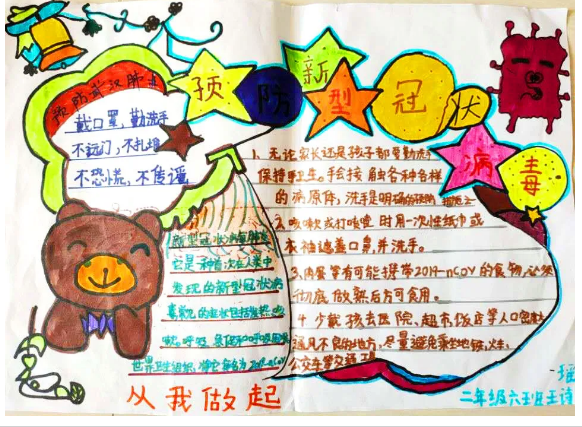 预防新型冠状病毒
预防武汉肺炎
戴口罩,勤洗手
不远门,不扎堆
不恐慌,不传谣
1、无论家长还是孩子都要勤洗手
保持手卫生。手会接触各种各样
的病原体,洗手是明确的预防措施之一
2、咳嗽或打喷嚏时用一次性纸巾或
衣袖遮盖口鼻,并洗手。
3、肉蛋等有可能携带2019-nCoV的食物,必须
彻底做熟后方可食用。
4、少带孩去医院、超市饭店等人口密集
通风不良的地方,尽量避免乘坐地铁、火车、
公交车等交通工具
新型冠状病毒肺炎
它是一种首次在人类中
发现的新型冠状病
毒常见的症状包括发热、咳
嗽、呼吸
世界卫生组织,将它命名为2019-nCoV
从我做起
二年级六班王诗
瑶